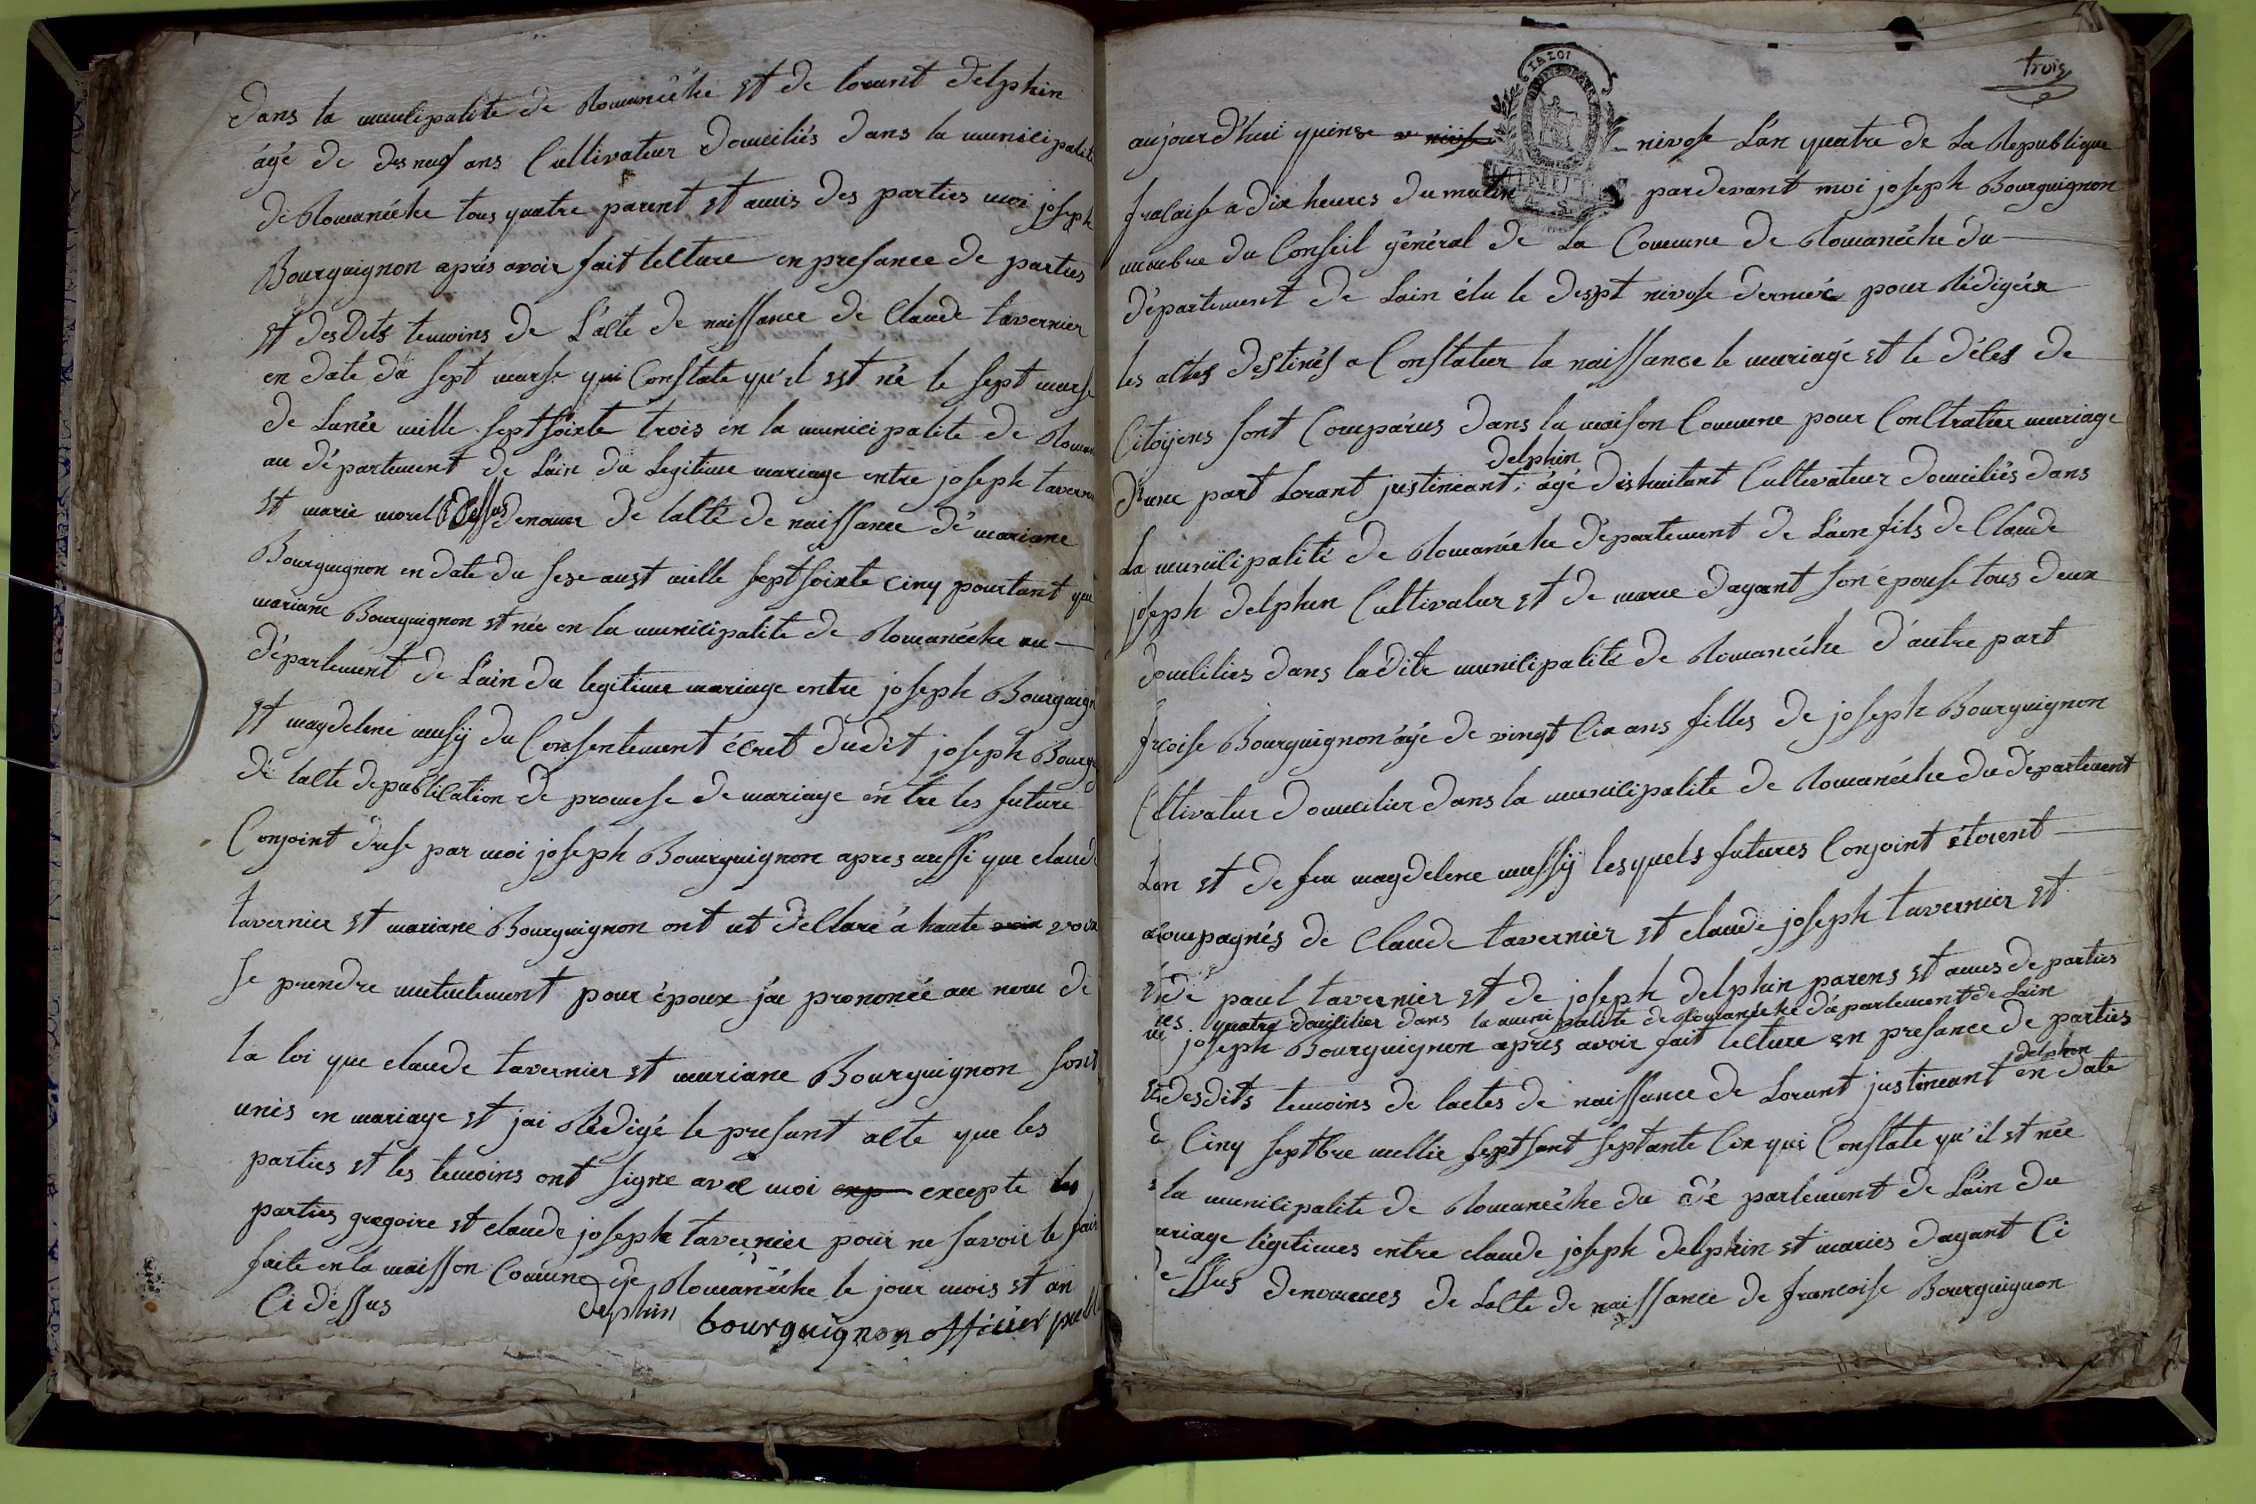 dans la municipalité de Romanèche et de lorant delphin
âgé de des neuf ans Cultivateur domeciliés dans la municipalité
de Romanéche tous quatre parent et amis des parties moi joseph
Bourguignon aprés avoir fait lecture en presance de parties
et desdits temoins de L'acte de naissance de Claude tavernier
en date du sept marse qui Constate qu'il est né le sept marse
de Lanée mille sept soixte trois en la municipalité de Roman
au département de L'ain du Legitime mariage entre joseph taverni
et marie morel Ci dessus denomer de lacte de naissance de mariane
Bourguignon en date du seze aust mille sept soixte cinq pourtant que
mariane Bourguignon et née en la municipalité de Romanéche au
département de L'ain du legitime mariage entre joseph Bourguign
et magdelene musÿ du Consentement écret dudit joseph Bourg
de lacte de publication de promese de mariage en tre les future
Conjoint drese par moi joseph Bourguignon apres aussi que claude
tavernier et mariane Bourguignon ont ut declaré à haute voix
se prendre mutuelement pour époux j'ai prononcée au nom de
la loi que claude tavernier et mariane Bourguignon sont
unis en mariage et jai Rédigé le presant acte que les
parties et les temoins ont signe avec moi exp excepte les
parties gregoire et claude joseph tavernier pour ne savoir le fair
faite en la maisson Comune de Romanéche le jour mois et an
Ci dessus
delphin bourguignon officier publ
trois
aujourd'hui quinse nivose L'an quatre de La Republique
fracaise a dix heures du matin pardevant moi joseph Bourguignon
membre du Conseil général de La Comune de Romanéche du
département de Lain élu le desept nivose dernier pour Rédigéer
les actes destinés a Constater la naissance le mariage et le déces de
Citoyens sont Comparus dans la maison Commune pour Contracter mariage
delphin
d'une part Lorant justineant, âgé dishuitant Cultivateur domeciliés dans
La municipalité de Romanéche département de L'ain fils de Claude
joseph delphin Cultivateur et de marie dagant son épouse tous deux
domecilies dans ladite municipalité de Romanéche d'autre part
frcoise Bourguignon âgé de vingt Cix ans filles de joseph Bourguignon
Cltivateur domecilier dans la municipalité de Romanéche du département
Lain et de feu magdelene mussÿ lesquels futures Conjoint étoient
acompagnés de Claude tavernier et claude joseph tavernier et
de paul tavernier et de joseph delphin parens et amis de parties
quatre domecilier dans la municipalité de Romanéche département de Lain
joseph Bourguignon apres avoir fait lecture en presance de parties
delphin
et desdits temoins de lactes de naissance de Lorant justineant en date
Cinq septbre mellie sept sant septante Cix qui Constate qu'il et née
la municipalité de Romanéche du dé partement de L'ain du
ariage légitimes entre claude joseph delphin et maries dagant Ci
dessus denommes de Lacte de naissance de francoise Bourguignon